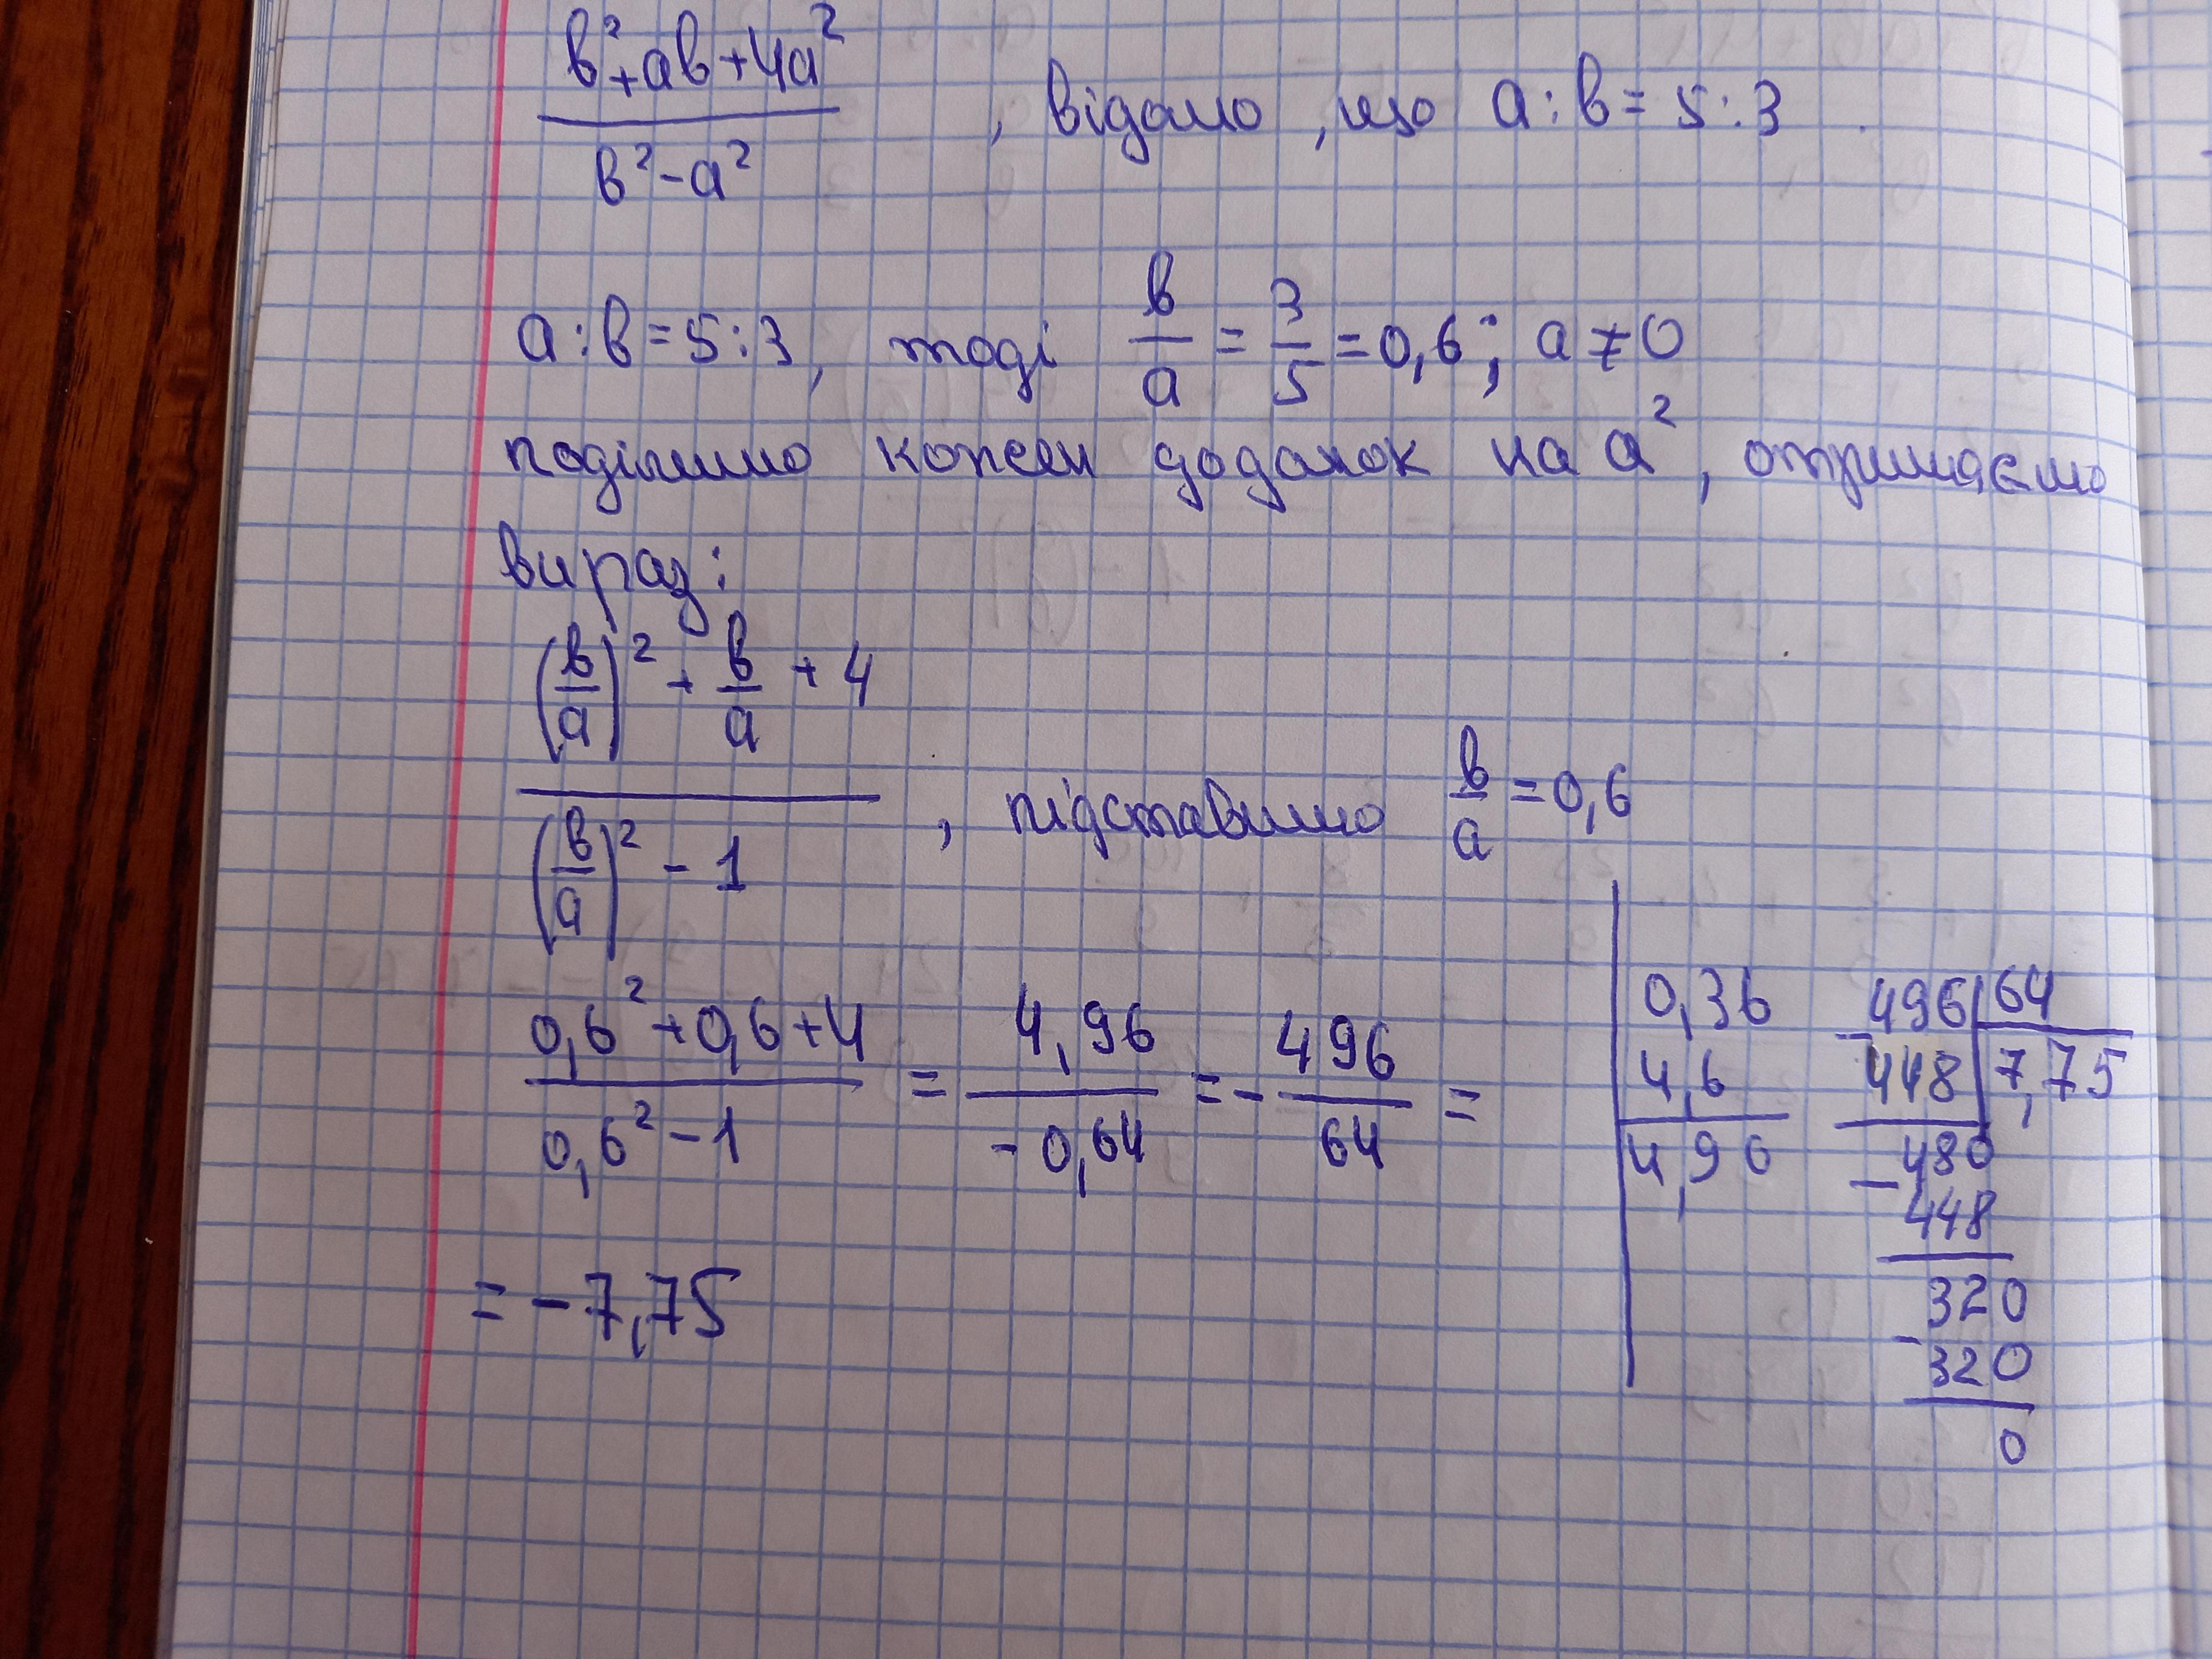 в²+ав+4а²
в²-а² , відомо, що а:в=5:3
а:в=5:3, тоді в/а = 3/5 = 0,6; а≠0
поділимо кожен доданок на а², отримаємо
вираз:
(в/а)² + в/а + 4
(в/а)² - 1 , підставимо в/а = 0,6
0,6²+0,6+4 / 0,6²-1 = 4,96 / -0,64 = - 496/64 =
= -7,75
0,36
4,6
4,96
-496 | 64
448 | 7,75
-480
448
320
-320
0